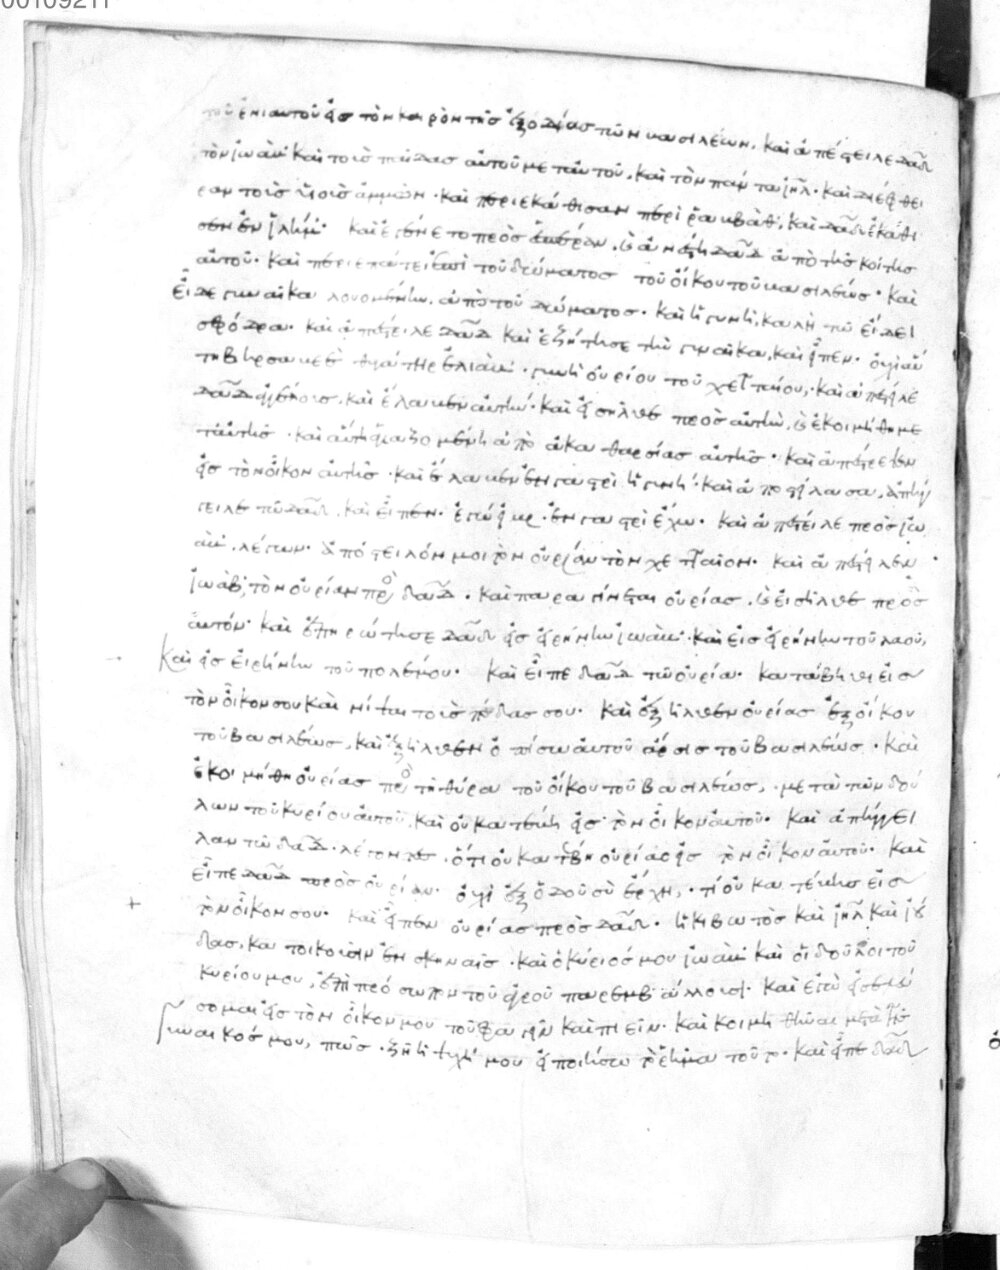 00109211
τοῦ ἐνιαυτοῦ εἰς τὸν καιρὸν τῆς ἐξοδίας τῶν βασιλέων. καὶ ἀπέστειλε δαδ
τὸν ἰωὰβ καὶ τοὺς παῖδας αὐτοῦ μετ αὐτοῦ. καὶ τὸν πάντα ιηλ. καὶ διέφθει
ραν τοὺς υἱοὺς ἀμμών. καὶ περιεκάθισαν περὶ ραββάθ. καὶ δαδ ἐκάθι
σεν ἐν ιλήμ. καὶ ἐγένετο πρὸς ἑσπέραν, καὶ ἀνέστη δαδ ἀπὸ τῆς κοίτης
αὐτοῦ. καὶ περιεπάτει ἐπὶ τοῦ δώματος τοῦ οἴκου τοῦ βασιλέως. καὶ
εἶδε γυναῖκα λουομένην ἀπὸ τοῦ δώματος. καὶ ἡ γυνὴ καλὴ τῶ εἴδει
σφόδρα. καὶ ἀπέστειλε δαδ καὶ ἐζήτησε τὴν γυναῖκα, καὶ εἶπεν. οὐχὶ αὕ
τη βηρσαβεὲ θυγάτηρ ἐλιὰβ. γυνὴ οὐρίου τοῦ χετταίου. καὶ ἀπέστειλε
δαδ ἀγγέλους. καὶ ἔλαβεν αὐτήν. καὶ εἰσῆλθε πρὸς αὐτὴν, καὶ ἐκοιμήθη με
τ αὐτῆς. καὶ αὕτη ἁγιαζομένη ἀπὸ ἀκαθαρσίας αὐτῆς. καὶ ἀπέστρεψεν
εἰς τὸν οἶκον αὐτῆς. καὶ ἔλαβεν ἐν γαστρὶ ἡ γυνή. καὶ ἀποστείλασα, ἀπήγ
γειλε τῶ δαδ. καὶ εἶπεν. ἐγώ εἰμι ἐν γαστρὶ ἔχω. καὶ ἀπέστειλε πρὸς ἰω
ὰβ. λέγων. ἀπόστειλόν μοι τὸν οὐρίαν τὸν χετταῖον. καὶ ἀπέστειλεν
ἰωὰβ τὸν οὐρίαν πρὸ δαδ. καὶ παραγίνεται οὐρίας, καὶ εἰσῆλθε πρὸς
αὐτόν. καὶ ἐπηρώτησε δαδ εἰς εἰρήνην ἰωὰβ. καὶ εἰς εἰρήνην τοῦ λαοῦ,
καὶ εἰς εἰρήνην τοῦ πολέμου. καὶ εἶπε δαδ τῶ οὐρία. κατάβηθι εἰς
τὸν οἶκον σου καὶ νίψαι τοὺς πόδας σου. καὶ ἐξῆλθεν οὐρίας ἐξ οἴκου
τοῦ βασιλέως, καὶ ἐξῆλθεν ὀπίσω αὐτοῦ ἄρσις τοῦ βασιλέως. καὶ
ἐκοιμήθη οὐρίας πρὸ τὴ θύρα τοῦ οἴκου τοῦ βασιλέως, μετὰ τῶν δού
λων τοῦ κυρίου αὐτοῦ καὶ οὐ κατέβη εἰς τὸν οἶκον αὐτοῦ. καὶ ἀπήγγει
λαν τῶ δαδ. λέγοντες. ὅτι οὐ κατέβη οὐρίας εἰς τὸν οἶκον αὐτοῦ. καὶ
εἶπε δαδ πρὸς οὐρίαν. οὐχὶ ἐξ ὁδοῦ σὺ ἔρχη, τί οὐ κατέβης εἰς
τὸν οἶκον σου. καὶ εἶπεν οὐρίας πρὸς δαδ. ἡ κιβωτὸς καὶ ιηλ καὶ ἰού
δας, κατοικοῦσιν ἐν σκηναῖς. καὶ ὁ κύριός μου ἰωὰβ καὶ οἱ δοῦλοι τοῦ
κυρίου μου, ἐπὶ πρόσωπον τοῦ ἀγροῦ παρεμβάλλουσι. καὶ ἐγὼ εἰσελεύ
σομαι εἰς τὸν οἶκον μου τοῦ φαγεῖν καὶ πιεῖν. καὶ κοιμηθῆναι μετὰ τῆς
γυναικός μου, πῶς. ζῆ ἡ ψυχή μου εἰ ποιήσω τὸ ῥῆμα τοῦτο. καὶ εἶπε δαδ